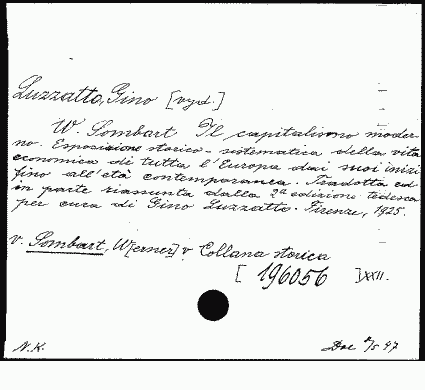 Luzzatto, Gino [vyd.]
W. Sombart Il capitalismo moder-
no. Esposizione storico-sistematica della vita
economica di tutta l'Europa dai suoi inizi
fino all'età contemporanea. Tradotta ed
in parte riassunta dalla 2ª edizione tedesca
per cura di Gino Luzzatto. Firenze, 1925.
v. Sombart, W[erner] v Collana storica
[ 196056 ] XXII.
N.K. Dar 47